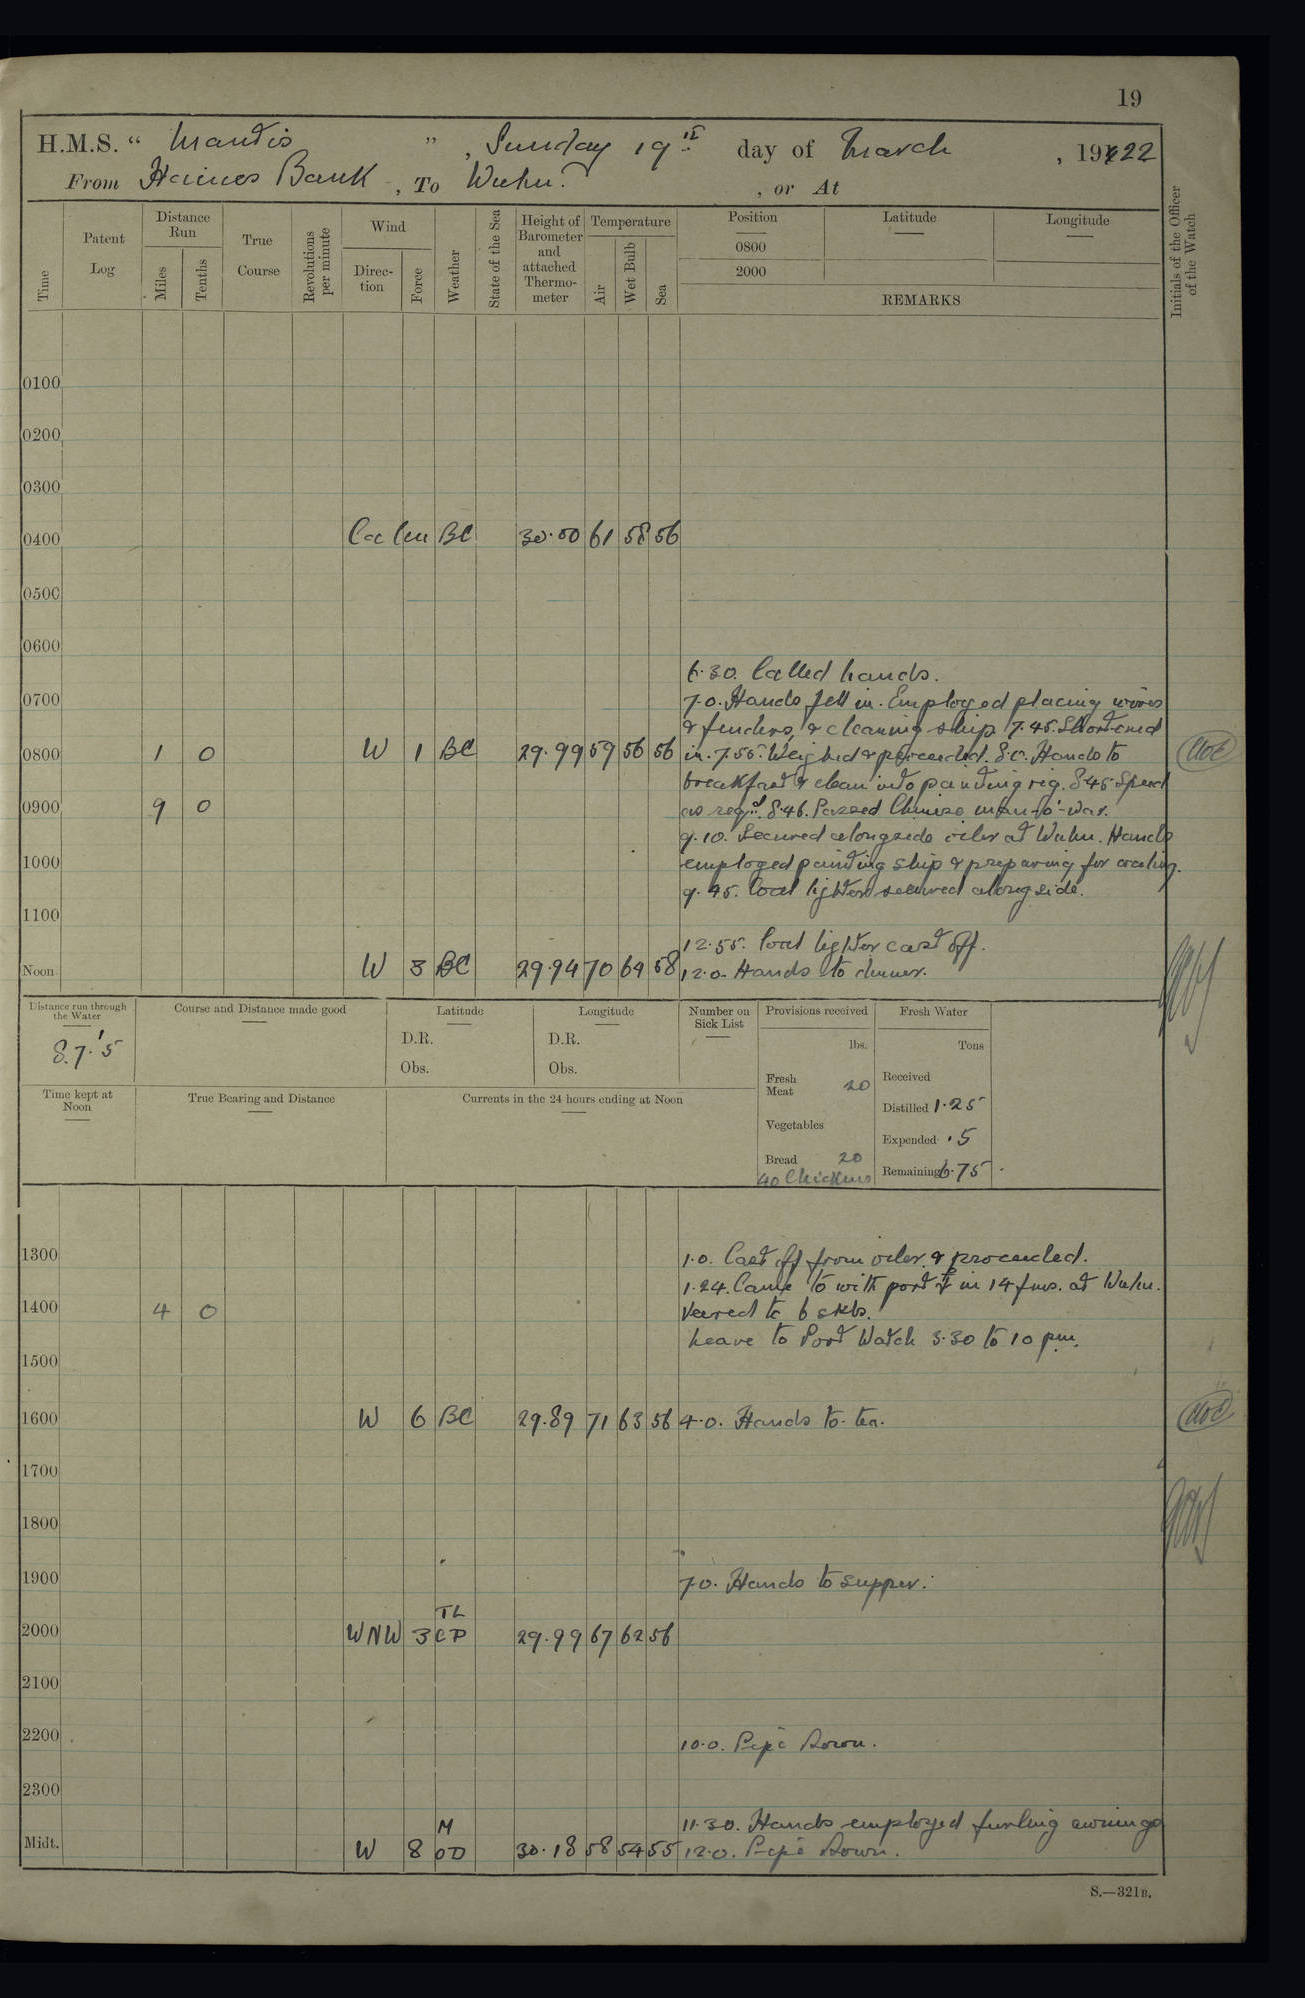 19
H.M.S. " Mantis " , Sunday 19th day of March , 1922
From Haines Bank , To Wuhu. , or At
Time
Patent Log
Distance Run
Miles
Tenths
True Course
Revolutions per minute
Wind
Direction
Force
Weather
State of the Sea
Height of Barometer and attached Thermometer
Temperature
Air
Wet Bulb
Sea
Position
0800
2000
Latitude
Longitude
REMARKS
Initials of the Officer of the Watch
0100
0200
0300
0400 Calm BC 30.00 61 58 56
0500
0600
6.30. Called hands.
0700 7.0. Hands fell in. Employed placing wires
& fenders, & cleaning ship 7.45. Shortened
0800 1 0 W 1 BC 29.99 59 56 56 in. 7.55. Weighed & proceeded. 8.0. Hands to
breakfast & clean into painting rig. 8.45 Speed
0900 9 0 as reqd. 8.46. Passed Chinese man-o'-war.
9.10. Secured alongside oiler at Wuhu. Hands
1000 employed painting ship & preparing for coaling.
9.45. Coal lighter secured alongside.
1100
12.55. Coal lighter cast off.
Noon W 3 BC 29.94 70 64 58 12.0. Hands to dinner.
Distance run through the Water
8.7.'5
Course and Distance made good
Latitude
D.R.
Obs.
Longitude
D.R.
Obs.
Number on Sick List
Provisions received
lbs.
Fresh Meat 20
Vegetables
Bread 20
40 Chickens
Fresh Water
Tons
Received
Distilled 1.25
Expended .5
Remaining 6.75
Time kept at Noon
True Bearing and Distance
Currents in the 24 hours ending at Noon
1300 1.0. Cast off from oiler & proceeded.
1.24. Came to with port in 14 fms. at Wuhu.
1400 4 0 Veered to 6 shks.
Leave to Port Watch 3.30 to 10 pm.
1500
1600 W 6 BC 29.89 71 63 56 4.0. Hands to tea.
1700
1800
1900 7.0. Hands to supper.
TL
2000 WNW 3 CP 29.99 67 62 56
2100
2200 10.0. Pipe Down.
2300
M 11.30. Hands employed furling awnings
Midt. W 8 OD 30.18 58 54 55 12.0. Pipe Down.
S.—321B.